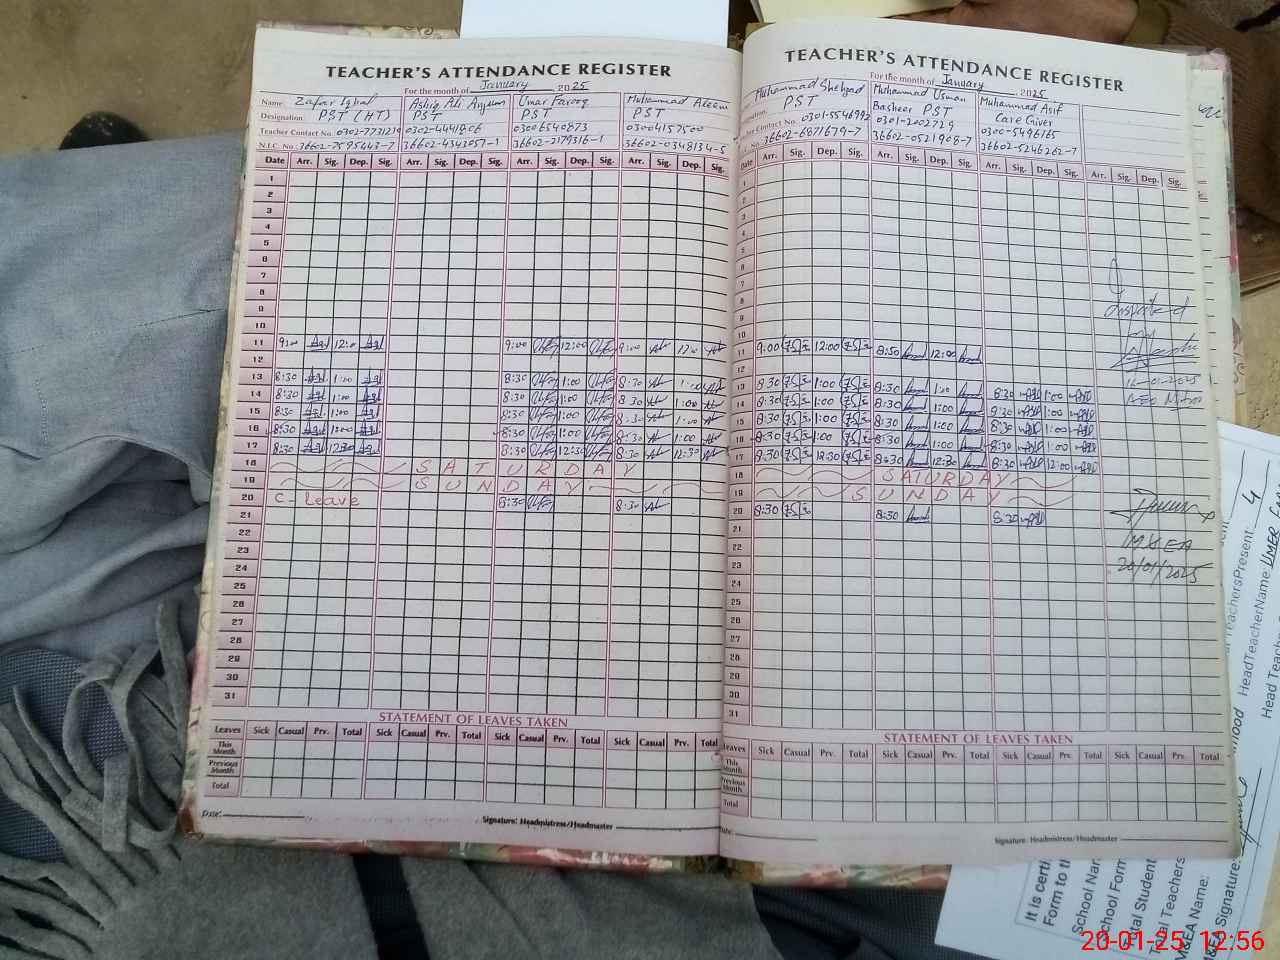 TEACHER'S ATTENDANCE REGISTER
For the month of January 2025
Name: Zafar Iqbal Ashiq Ali Anjum Umar Farooq Muhammad Aleem
Designation: PST (HT) PST PST PST
Teacher Contact No. 0302-4441806 03006540873 03004157500
N.I.C. No. 36602-7595443-7 36602-4343057-1 36602-2179316-1 36602-0348134-5
Date Arr. Sig. Dep. Sig. Arr. Sig. Dep. Sig. Arr. Sig. Dep. Sig. Arr. Sig. Dep. Sig.
1
2
3
4
5
6
7
8
9
10
11 9:00 12:00 9:00 12:00 9:00
12
13 8:30 1:00 8:30 1:00 8:30
14 8:30 1:00 8:30 1:00 8:30 1:00
15 8:30 1:00 8:30 1:00 8:30 1:00
16 8:30 1:00 8:30 1:00 8:30 1:00
17 8:30 12:30 8:30 12:30 8:30 12:30
18 SATURDAY
19 SUNDAY
20 C-Leave 8:30 8:30
21
22
23
24
25
26
27
28
29
30
31
STATEMENT OF LEAVES TAKEN
Leaves Sick Casual Prv. Total Sick Casual Prv. Total Sick Casual Prv. Total Sick Casual Prv. Total
This Month
Previous Month
Total
Date:
Signature: Headmistress/Headmaster
TEACHER'S ATTENDANCE REGISTER
For the month of January 2025
Muhammad Shehzad Muhammad Usman Muhammad Asif
PST Basheer PST Care Giver
Teacher Contact No. 0301-5546992 0301-2002729 0300-5496165
N.I.C. No. 36602-6871679-7 36602-0521908-7 36602-5246262-7
Date Arr. Sig. Dep. Sig. Arr. Sig. Dep. Sig. Arr. Sig. Dep. Sig. Arr. Sig. Dep. Sig.
1
2
3
4
5
6
7
8
9
10
11 9:00 12:00 8:50 12:00
12
13 8:30 1:00 8:30 1:00 8:30 1:00
14 8:30 1:00 8:30 1:00 8:30 1:00
15 8:30 1:00 8:30 1:00 8:30 1:00
16 8:30 1:00 8:30 1:00 8:30 1:00
17 8:30 12:30 8:30 12:30 8:30 12:00
18 SATURDAY
19 SUNDAY
20 8:30 8:30 8:30
21
22
23
24
25
26
27
28
29
30
31
by
16-01-2025
M&EA
20/01/2025
STATEMENT OF LEAVES TAKEN
Leaves Sick Casual Prv. Total Sick Casual Prv. Total Sick Casual Prv. Total Sick Casual Prv. Total
This Month
Previous Month
Total
Date:
Signature: Headmistress/Headmaster
TeachersPresent: 4
HeadTeacherName: UMER
Head Teacher
It is certi
Form to th
School Nam
School Form
Total Student
Total Teachers
M&EA Name:
M&EA Signature:
20-01-25 12:56